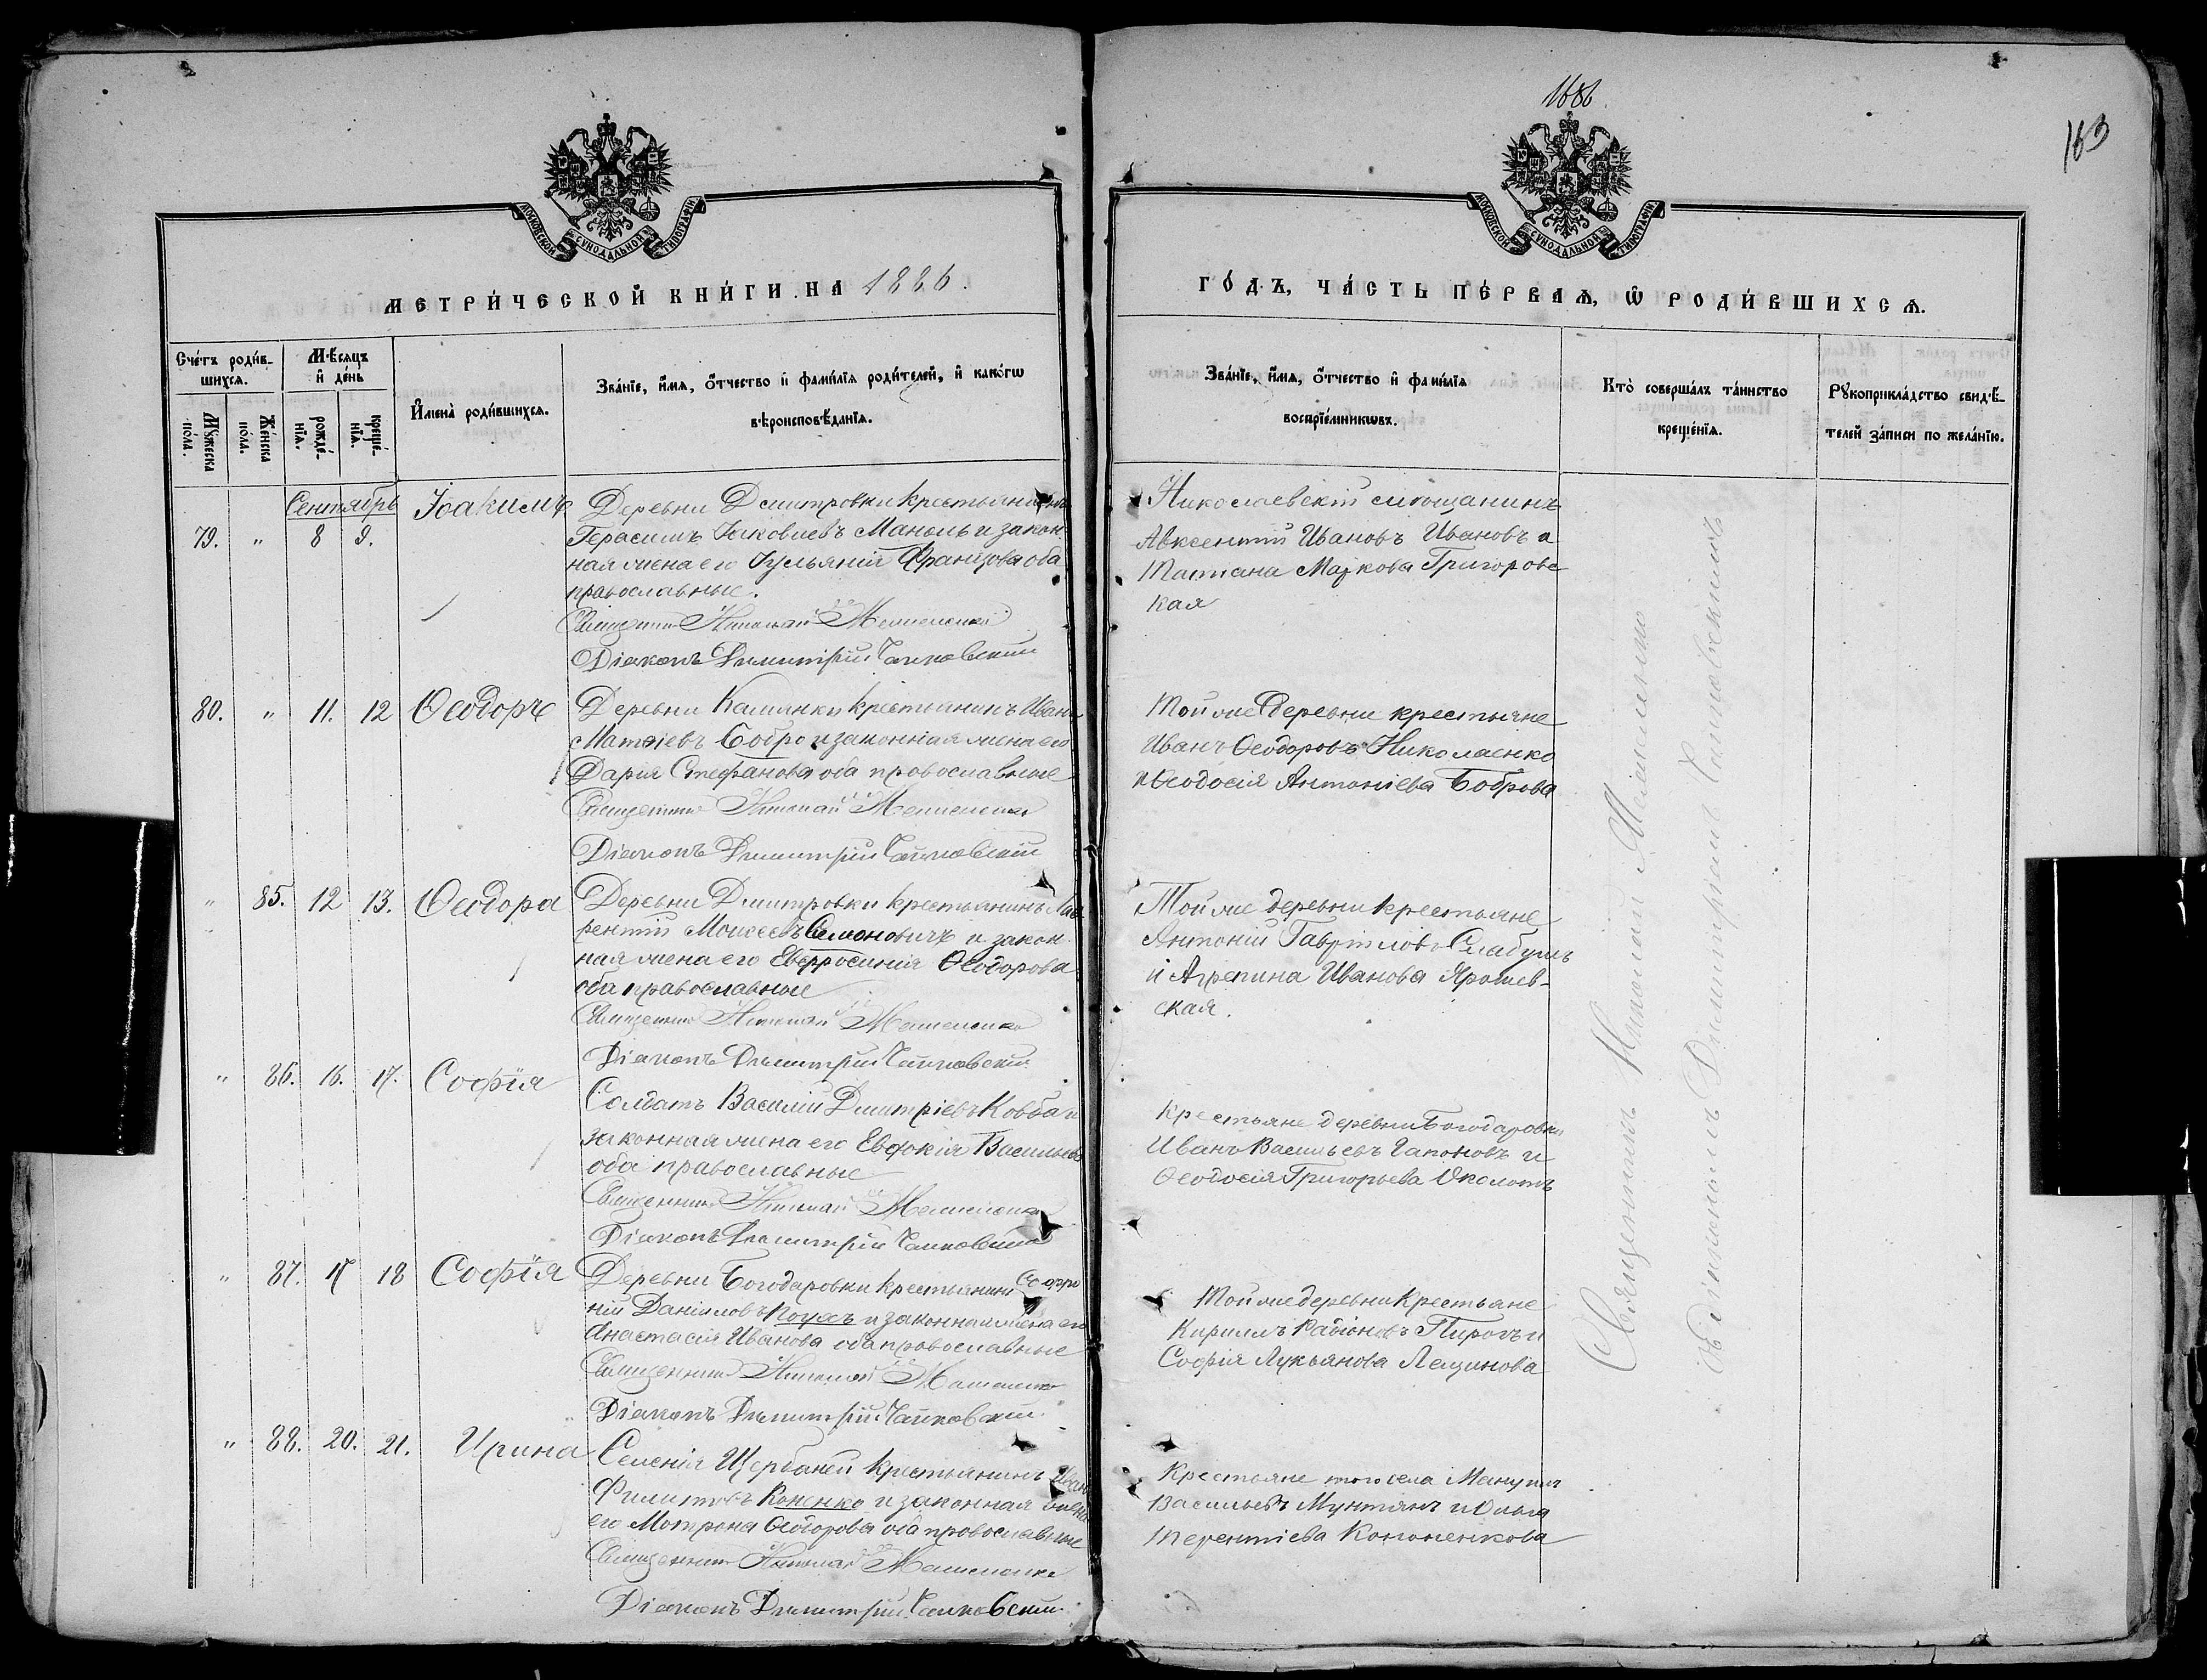 1886
163
МОСКОВСКОЙ СѴНОДАЛЬНОЙ ТИПОГРАФІИ
МОСКОВСКОЙ СѴНОДАЛЬНОЙ ТИПОГРАФІИ
МЕТРИ́ЧЕСКОЙ КНИ́ГИ НА 1886.
ГО́ДЪ, ЧА́СТЬ ПЕ́РВАѦ, Ѡ҆ РОДИ́ВШИХСѦ.
Сче́тъ роди́в-
шихсѧ.
Мꙋ́жеска пола.
Же́нска по́ла.
Мѣ́сяцъ
и҆ де́нь
рожде́-
нїѧ.
креще́-
нїѧ.
И҆мена̀ роди́вшихсѧ.
Зва́нїе, и҆́мѧ, ѻ҆́тчество и҆ фами́лїѧ роди́телей, и҆ како́гѡ
вѣроисповѣ́данїѧ.
Зва́нїе, и҆́мѧ, ѻ҆́тчество и҆ фами́лїѧ
воспрїе́мникѡвъ.
Кто̀ соверша́лъ та́инство
креще́нїѧ.
Рꙋкоприкла́дство свидѣ́-
телей за́писи по жела́нїю.
Сентябрь
79. " 8 9. Іоакимъ
Деревни Дмитровки крестьянинъ
Герасимъ Яковлевъ Маноль и закон
ная жена его Іульянія Францова оба
православные.
Священникъ Николай
Діаконъ Димитрій Чайковскій
Николаевскій мѣщанинъ
Авксентій Ивановъ Ивановъ и
Татіана Маркова Григоровс
кая
80. " 11. 12 Ѳеодоръ
Деревни Камянки крестьянинъ Иванъ
Матѳіевъ Бобро и законная жена его
Дарія Стефанова оба православные
Священникъ Николай
Діаконъ Димитрій Чайковскій
Той же деревни крестьяне
Иванъ Ѳеодоровъ Николаенко
и Ѳеодосія Антоніева Боброва
" 85. 12 13. Ѳеодора
Деревни Дмитровки крестьянинъ Лав
рентій Моисеевъ Симоновичъ и закон
ная жена его Евфросинія Ѳеодорова
оба православные
Священникъ Николай
Діаконъ Димитрій Чайковскій
Той же деревни крестьяне
Антоній Гавріиловъ Слабумъ
и Агрепина Иванова Яро
ская.
" 86. 16. 17. Софія
Солдатъ Василій Дмитріевъ Ковба и
законная жена его Евдокія Васильева
оба православные
Священникъ Николай
Діаконъ Димитрій Чайковскій
Крестьяне деревни Богодаровки
Иванъ Васильевъ Гапоновъ и
Ѳеодосія Григорьева Околотъ
" 87. 17 18 Софія
Деревни Богодаровки крестьянинъ Софро
ній Даніиловъ и законная жена его
Анастасія Иванова оба православные
Священникъ Николай
Діаконъ Димитрій Чайковскій
Той же деревни крестьяне
Кириллъ Радіоновъ Пирогъ и
Софія Лукьянова Лещинова
" 88. 20. 21. Ирина
Селенія Щербаней крестьянинъ Иван
Филиповъ Коненко и законная жена
его Мотрона Ѳеодорова оба православные
Священникъ Николай
Діаконъ Димитрій Чайковскій
Крестьяне того села Мануилъ
Васильевъ Мунтянъ и Ольга
Терентіева Кононенкова
Священникъ Николай
съ діакономъ Димитріемъ Чайковскимъ